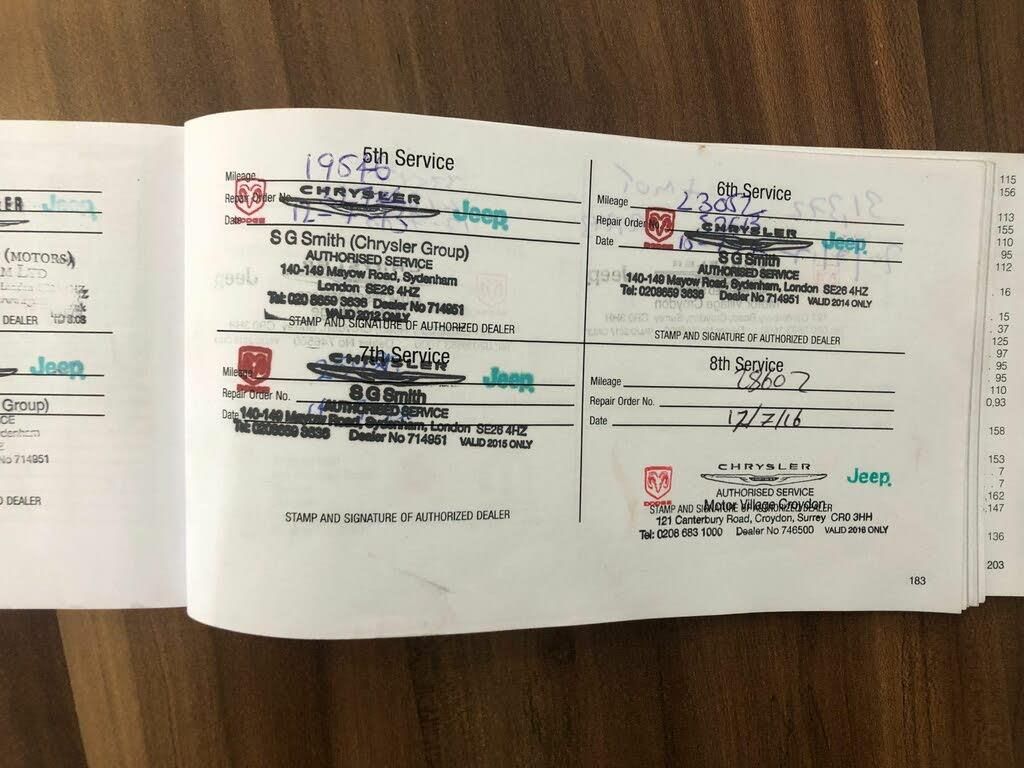 ER
Jeep
(MOTORS)
M LTD
DEALER
Jeep
Group)
CE
denham
No 714951
DEALER
5th Service
Mileage 19546
Repair Order No.
Date
DODGE
CHRYSLER
Jeep
S G Smith (Chrysler Group)
AUTHORISED SERVICE
140-149 Mayow Road, Sydenham
London SE26 4HZ
Tel: 020 8659 3636 Dealer No 714951
VALID 2012 ONLY
STAMP AND SIGNATURE OF AUTHORIZED DEALER
6th Service
Mileage 23052
Repair Order No.
Date
DODGE
CHRYSLER
Jeep
S G Smith
AUTHORISED SERVICE
140-149 Mayow Road, Sydenham, London SE26 4HZ
Tel: 0208659 3636 Dealer No 714951 VALID 2014 ONLY
STAMP AND SIGNATURE OF AUTHORIZED DEALER
7th Service
Mileage
Repair Order No.
Date
DODGE
CHRYSLER
Jeep
S G Smith
AUTHORISED SERVICE
140-149 Mayow Road, Sydenham, London SE26 4HZ
Tel: 0208659 3636 Dealer No 714951 VALID 2015 ONLY
STAMP AND SIGNATURE OF AUTHORIZED DEALER
8th Service
Mileage 28607
Repair Order No.
Date 12/7/16
DODGE
CHRYSLER
Jeep
AUTHORISED SERVICE
STAMP AND SIGNATURE OF AUTHORIZED DEALER
Motor Village Croydon
121 Canterbury Road, Croydon, Surrey CR0 3HH
Tel: 0208 683 1000 Dealer No 746500 VALID 2016 ONLY
183
115
156
113
155
110
95
112
16
15
37
125
97
95
95
110
0,93
158
153
7
7
162
147
136
203